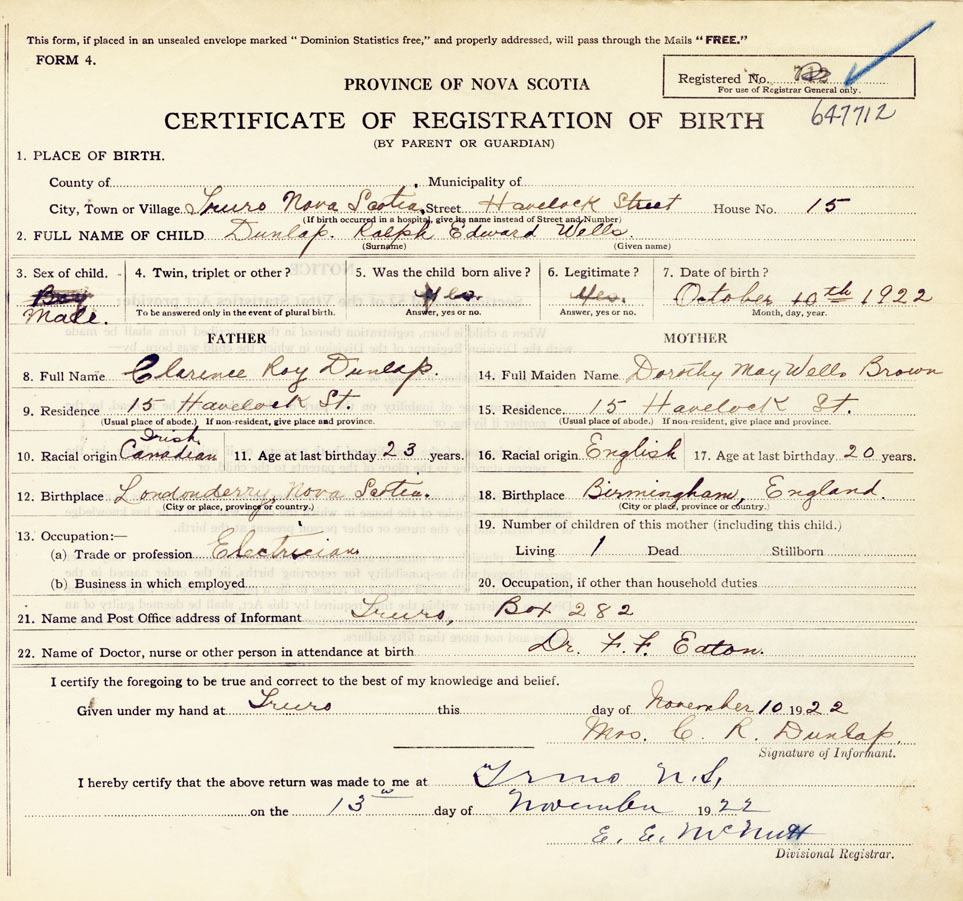 This form, if placed in an unsealed envelope marked "Dominion Statistics free," and properly addressed, will pass through the Mails "FREE."
FORM 4.
Registered No.
For use of Registrar General only.
PROVINCE OF NOVA SCOTIA
647712
CERTIFICATE OF REGISTRATION OF BIRTH
(BY PARENT OR GUARDIAN)
1. PLACE OF BIRTH.
County of Municipality of
City, Town or Village Truro Nova Scotia, Street Havelock Street House No. 15
(If birth occurred in a hospital, give its name instead of Street and Number)
2. FULL NAME OF CHILD Dunlap. Ralph Edward Wells.
(Surname) (Given name)
3. Sex of child. 4. Twin, triplet or other? 5. Was the child born alive? 6. Legitimate? 7. Date of birth?
Boy Yes. Yes. October 10th 1922
Male. To be answered only in the event of plural birth. Answer, yes or no. Answer, yes or no. Month, day, year.
FATHER MOTHER
8. Full Name Clarence Roy Dunlap. 14. Full Maiden Name Dorothy May Wells Brown
9. Residence 15 Havelock St. 15. Residence 15 Havelock St.
(Usual place of abode.) If non-resident, give place and province. (Usual place of abode.) If non-resident, give place and province.
Irish
10. Racial origin Canadian 11. Age at last birthday 23 years. 16. Racial origin English 17. Age at last birthday 20 years.
12. Birthplace Londonderry, Nova Scotia. 18. Birthplace Birmingham, England.
(City or place, province or country.) (City or place, province or country.)
13. Occupation:— 19. Number of children of this mother (including this child.)
(a) Trade or profession Electrician Living 1 Dead Stillborn
(b) Business in which employed 20. Occupation, if other than household duties
21. Name and Post Office address of Informant Truro, Box 282
22. Name of Doctor, nurse or other person in attendance at birth Dr. F. F. Eaton.
I certify the foregoing to be true and correct to the best of my knowledge and belief.
Given under my hand at Truro this day of November 10 1922
Mrs. C. R. Dunlap.
Signature of Informant.
I hereby certify that the above return was made to me at Truro N.S.
on the 13 day of November 1922
E. E. McNutt
Divisional Registrar.